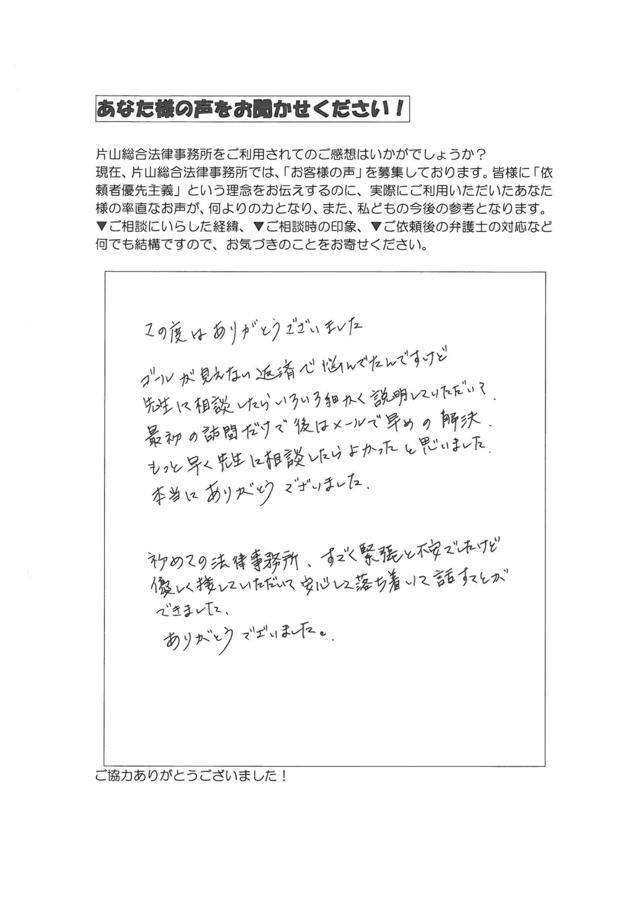 あなた様の声をお聞かせください！
片山総合法律事務所をご利用されてのご感想はいかがでしょうか？
現在、片山総合法律事務所では、「お客様の声」を募集しております。皆様に「依
頼者優先主義」という理念をお伝えするのに、実際にご利用いただいたあなた
様の率直なお声が、何よりの力となり、また、私どもの今後の参考となります。
▼ご相談にいらした経緯、▼ご相談時の印象、▼ご依頼後の弁護士の対応など
何でも結構ですので、お気づきのことをお寄せください。
この度はありがとうございました
ゴールが見えない返済で悩んでたんですけど
先生に相談したらいろいろ細かく説明していただいて、
最初の訪問だけで後はメールで早めの解決、
もっと早く先生に相談したらよかったと思いました。
本当にありがとうございました。
初めての法律事務所、すごく緊張と不安でしたけど
優しく接していただいて安心して落ち着いて話すことが
できました、
ありがとうございました。
ご協力ありがとうございました！